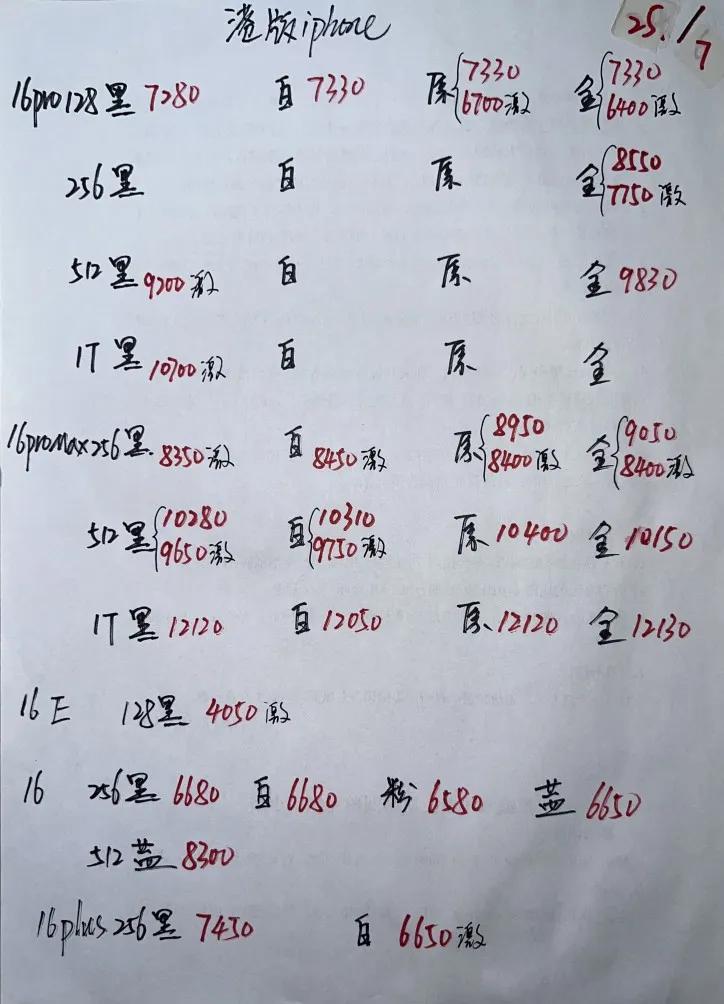 港版iphone 25./7
16pro128黑 7280 白 7330 原{7330 6700激 金{7330 6400激
256黑 白 原 金{8550 7750激
512黑 9200激 白 原 金 9830
1T黑 10700激 白 原 金
16promax256黑 8350激 白 8450激 原{8950 8400激 金{9050 8400激
512黑{10280 9650激 白{10310 9750激 原 10400 金 10150
1T黑 12120 白 12050 原 12120 金 12130
16E 128黑 4050激
16 256黑 6680 白 6680 粉 6580 蓝 6650
512蓝 8300
16plus256黑 7450 白 6650激